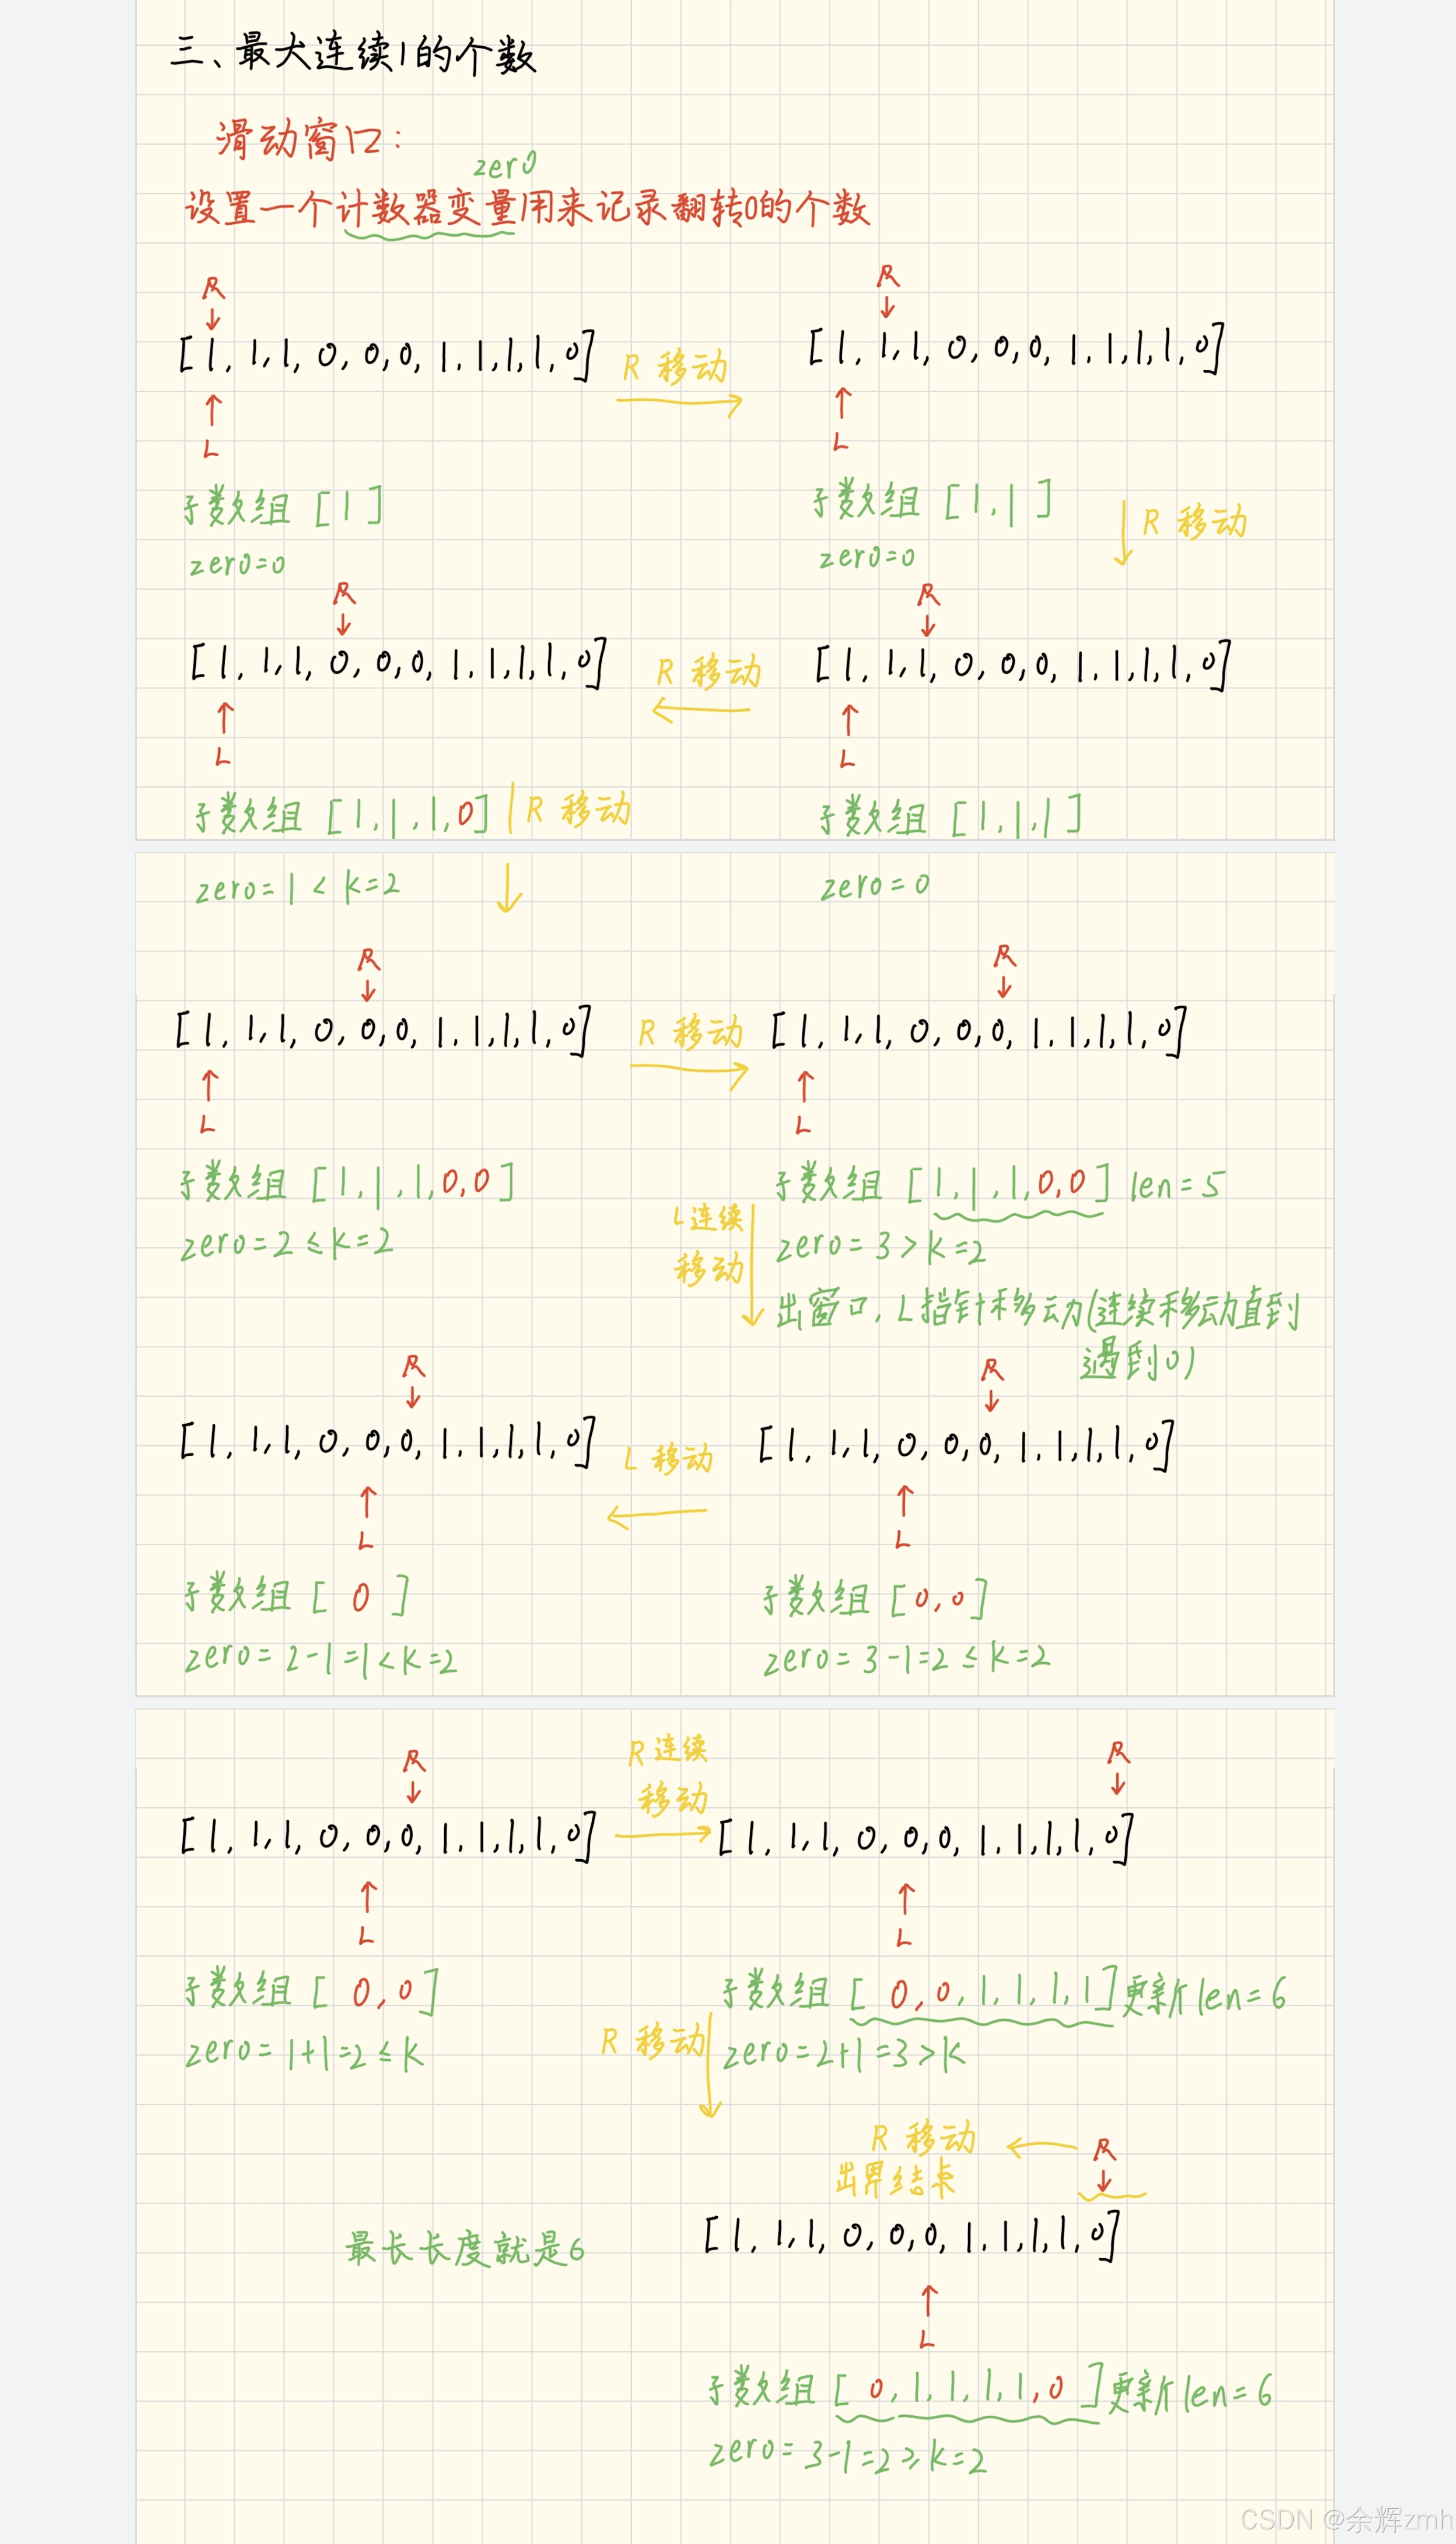 三、最大连续1的个数
滑动窗口：
zero
设置一个计数器变量用来记录翻转0的个数
R
R
[1,1,1,0,0,0,1,1,1,1,0]
R 移动
[1,1,1,0,0,0,1,1,1,1,0]
L
L
子数组 [1]
子数组 [1,1]
R 移动
zero=0
zero=0
R
R
[1,1,1,0,0,0,1,1,1,1,0]
R 移动
[1,1,1,0,0,0,1,1,1,1,0]
L
L
子数组 [1,1,1,0]
R 移动
子数组 [1,1,1]
zero=1 < k=2
zero=0
R
R
[1,1,1,0,0,0,1,1,1,1,0]
R 移动
[1,1,1,0,0,0,1,1,1,1,0]
L
L
子数组 [1,1,1,0,0]
子数组 [1,1,1,0,0] len=5
zero=2 ≤ k=2
L连续
移动
zero=3 > k=2
出窗口, L指针移动(连续移动直到
遇到0)
R
R
[1,1,1,0,0,0,1,1,1,1,0]
L 移动
[1,1,1,0,0,0,1,1,1,1,0]
L
L
子数组 [0]
子数组 [0,0]
zero=2-1=1<k=2
zero=3-1=2≤k=2
R
R 连续
移动
R
[1,1,1,0,0,0,1,1,1,1,0]
[1,1,1,0,0,0,1,1,1,1,0]
L
L
子数组 [0,0]
子数组 [0,0,1,1,1,1]更新len=6
zero=1+1=2≤k
R 移动
zero=2+1=3>k
R 移动
出界结束
R
最长长度就是6
[1,1,1,0,0,0,1,1,1,1,0]
L
子数组 [0,1,1,1,1,0]更新len=6
zero=3-1=2≥k=2
CSDN @余辉zmh